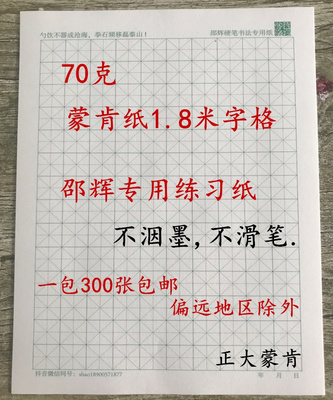 勺饮不器成沧海，拳石频移磊泰山！ 邵辉硬笔书法专用纸
70克
蒙肯纸1.8米字格
邵辉专用练习纸
不洇墨,不滑笔.
一包300张包邮
偏远地区除外
正大蒙肯
年 月 日